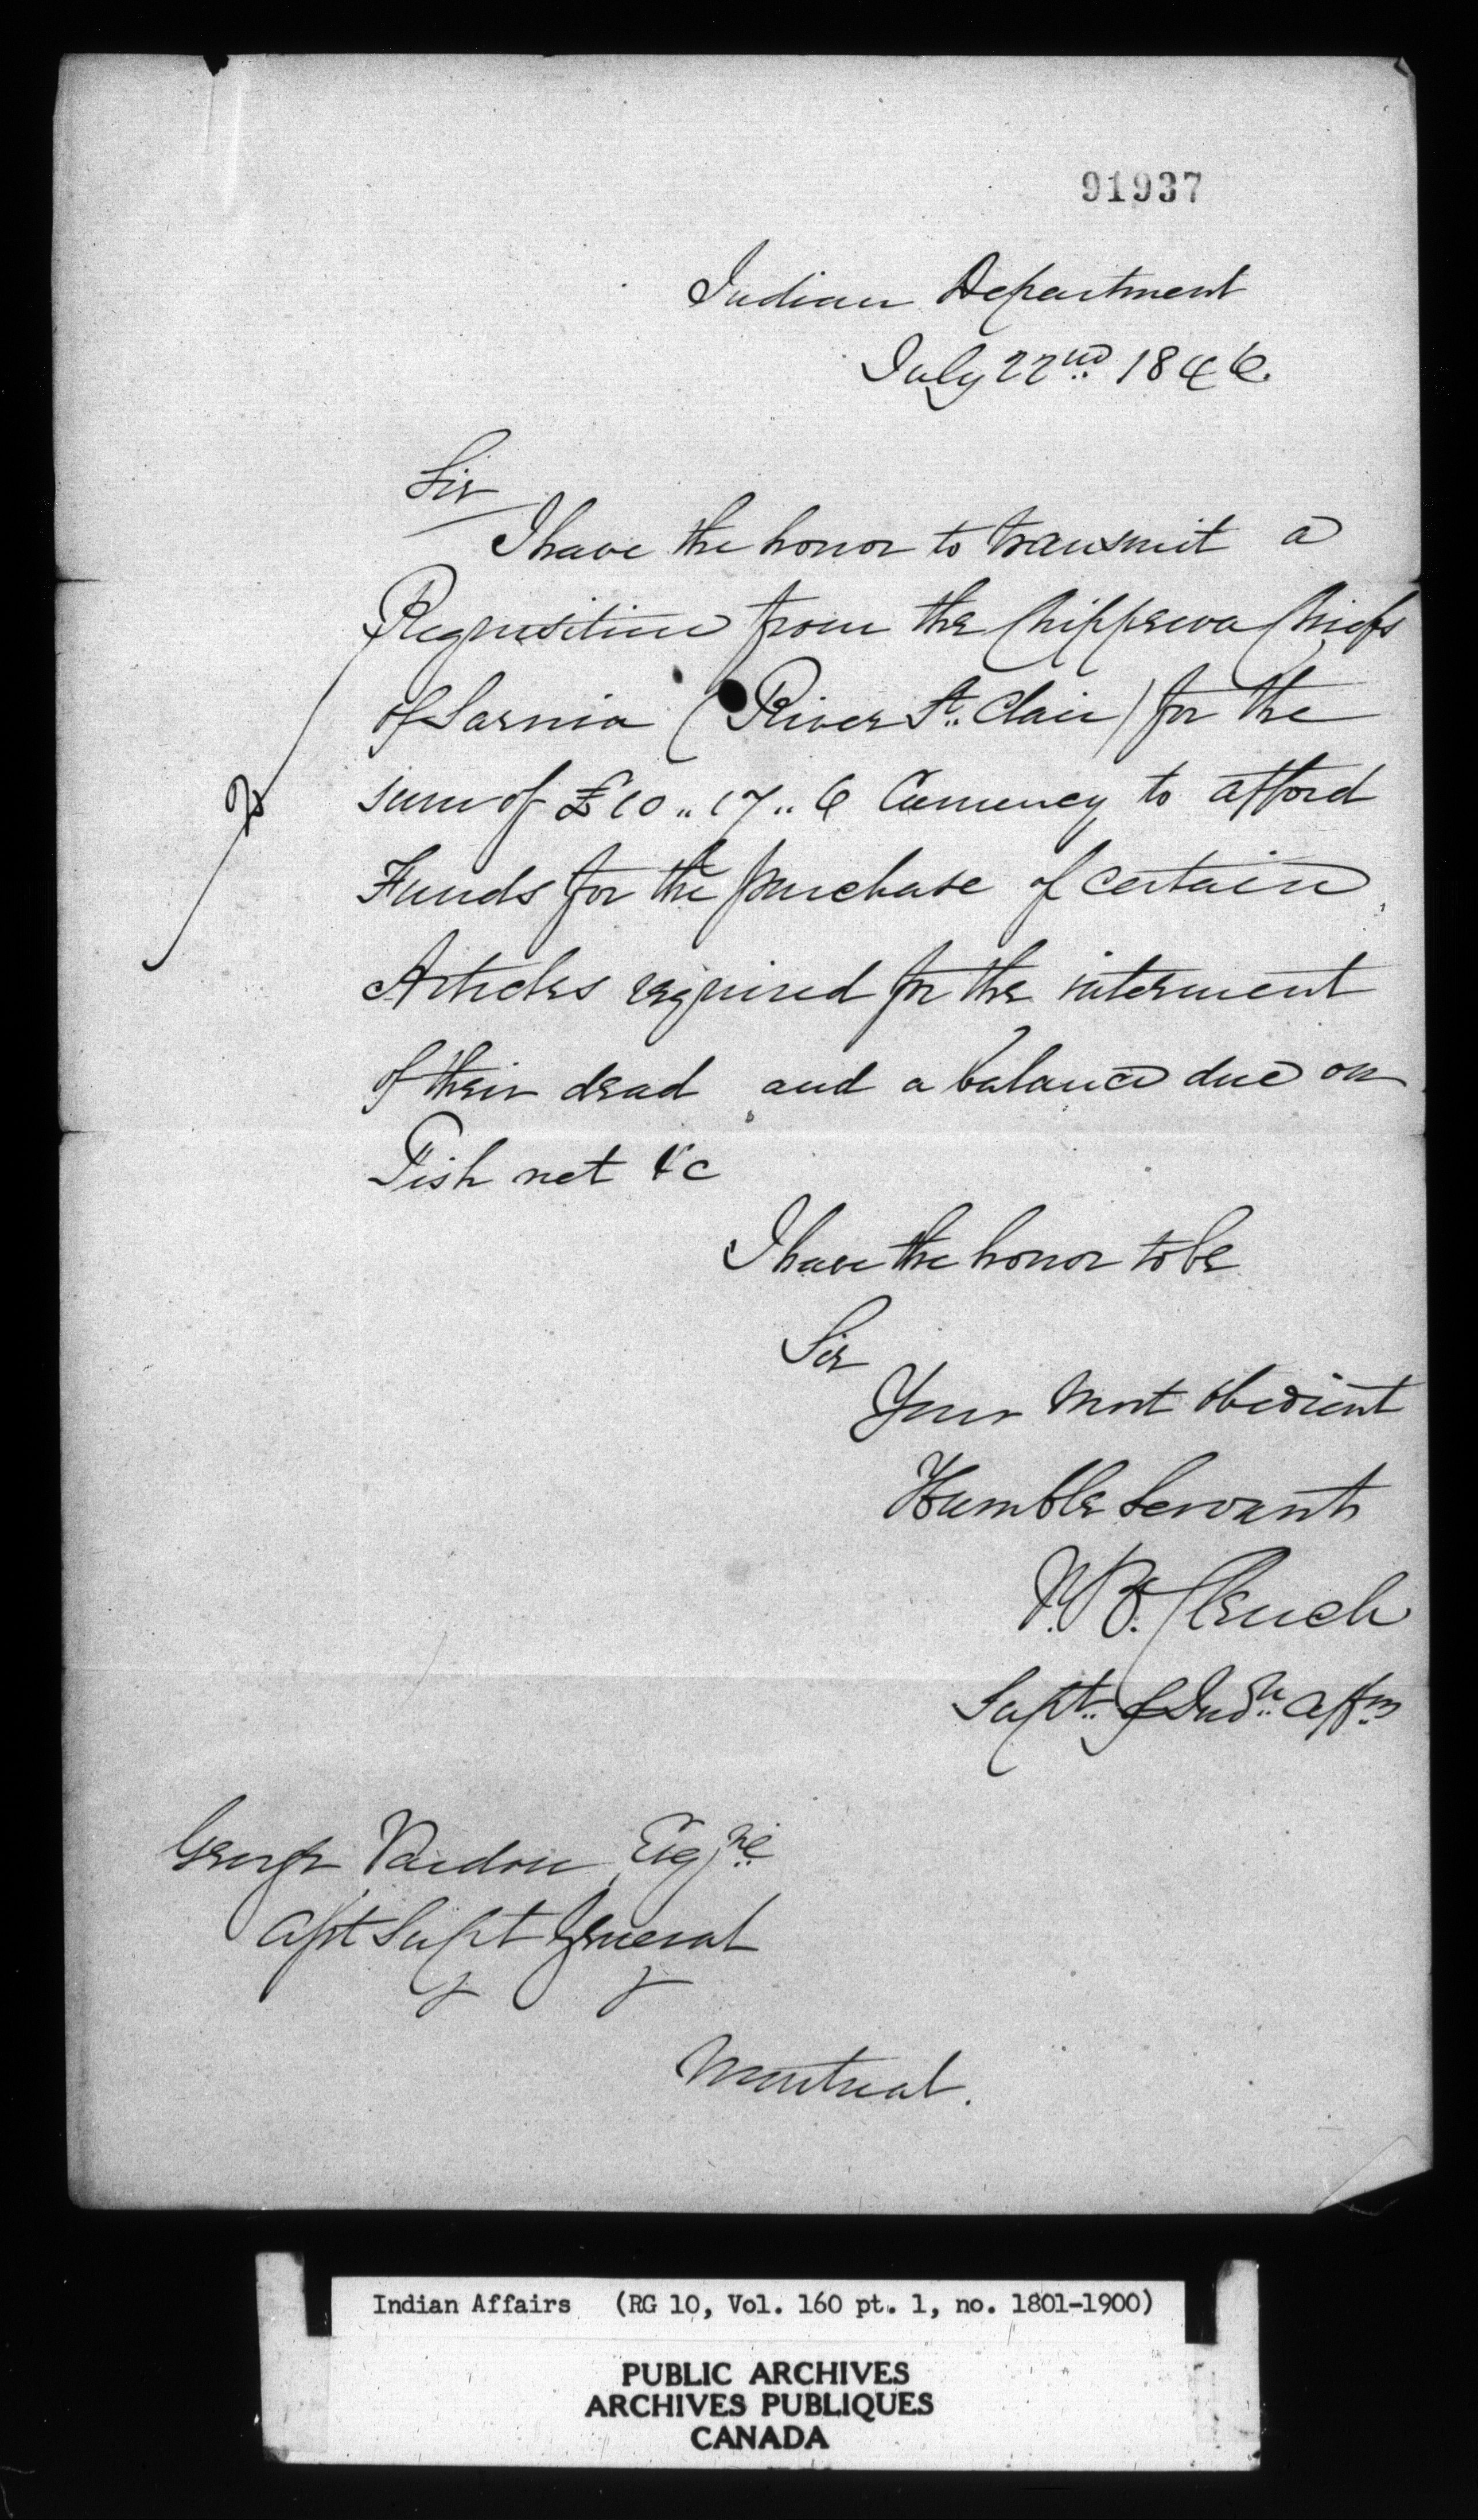 91937
Indian Department
July 22nd 1846
Sir
I have the honor to transmit a
Requisition from the Chippewa Chiefs
of Sarnia (River St. Clair) for the
sum of £10 „ 17 „ 6 Currency to afford
Funds for the purchase of certain
Articles required for the interment
of their dead and a balance due on
Fish net &c
I have the honor to be
Sir
Your Most obedient
Humble Servant
J.B. Clench
Supt. of Indn. Affrs
George Vardon Esqre
Asst Supt General
Montreal.
Indian Affairs (RG 10, Vol. 160 pt. 1, no. 1801-1900)
PUBLIC ARCHIVES
ARCHIVES PUBLIQUES
CANADA